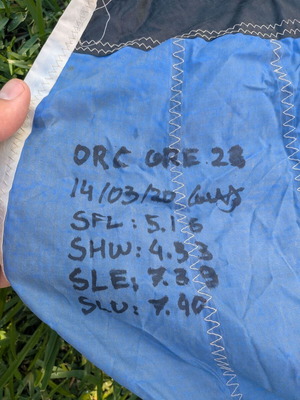 ORC GRE 28
14/03/20
SFL: 5.15
SHW: 4.53
SLE: 7.39
SLU: 7.40